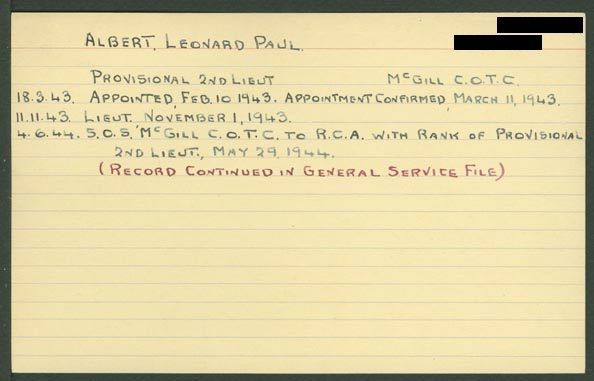 ALBERT, LEONARD PAUL.
PROVISIONAL 2ND LIEUT McGILL C.O.T.C.
18.3.43. APPOINTED, FEB. 10 1943. APPOINTMENT CONFIRMED, MARCH 11, 1943.
11.11.43. LIEUT. NOVEMBER 1, 1943.
4.6.44. S.O.S. McGILL C.O.T.C. TO R.C.A. WITH RANK OF PROVISIONAL
2ND LIEUT., MAY 29, 1944.
(RECORD CONTINUED IN GENERAL SERVICE FILE)